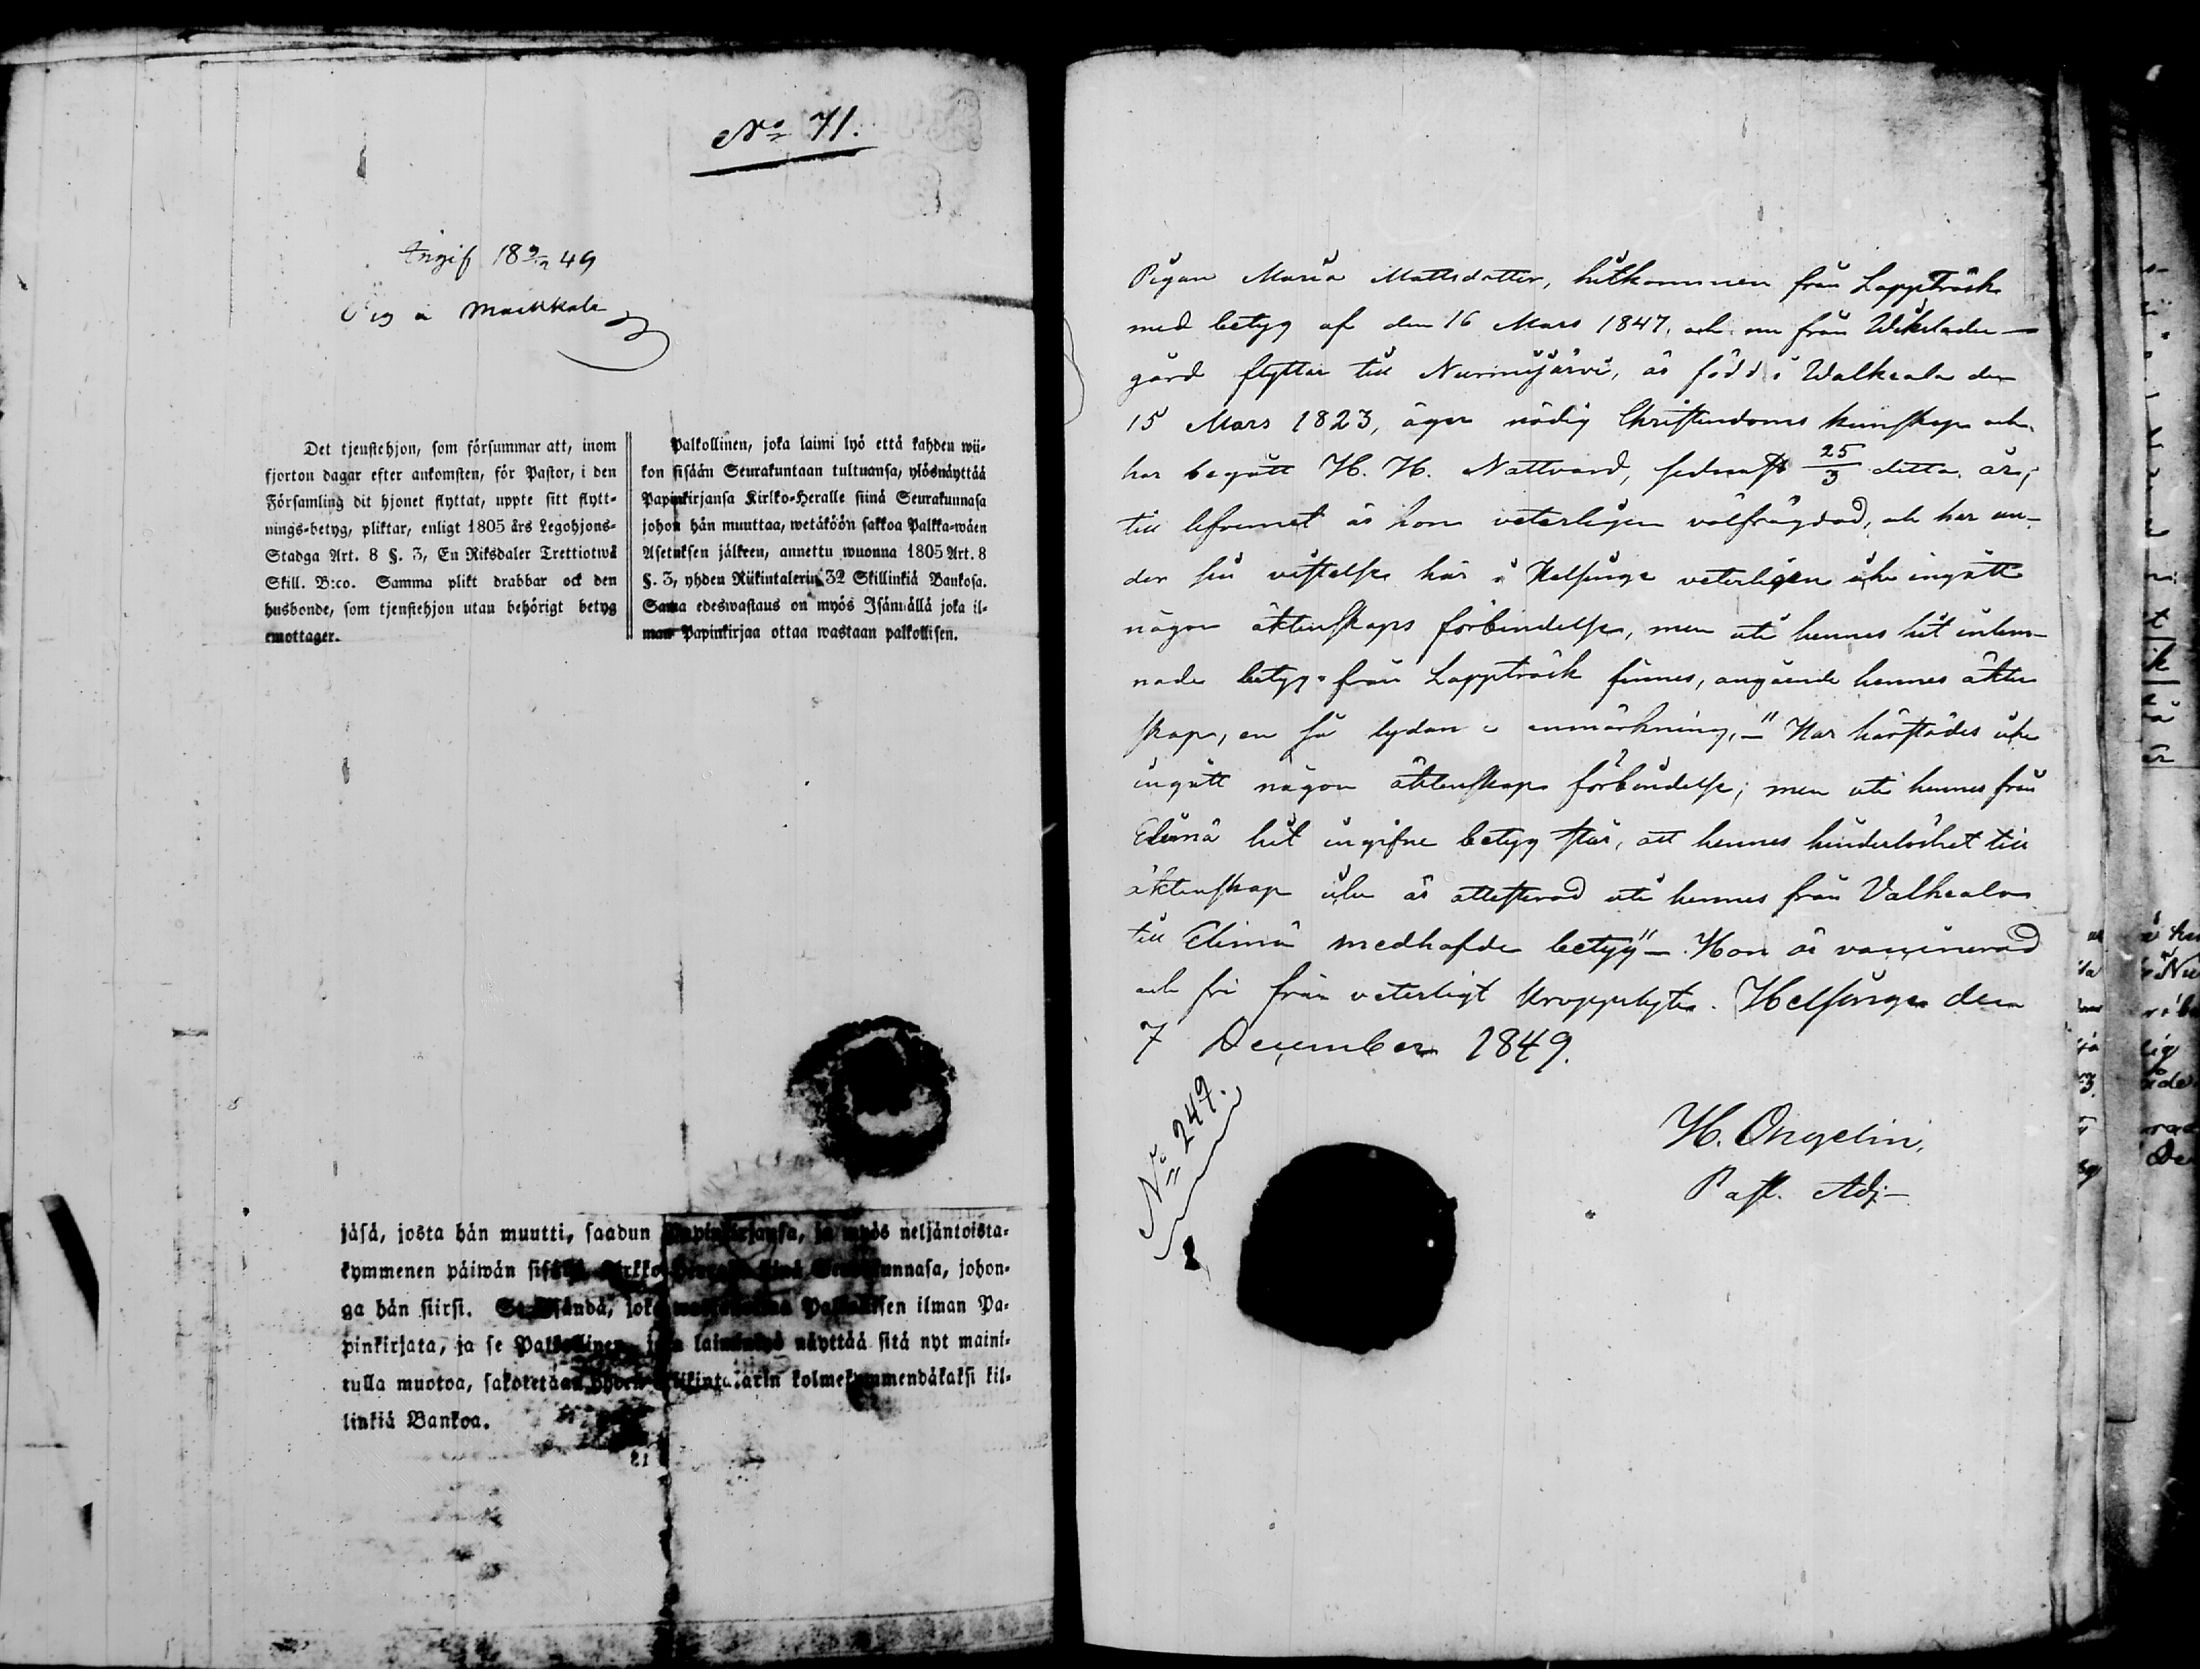 No 71.
Ingif 18 9/12 49
Pig a Maikkala
Det tjenstehjon, som försummar att, inom
fjorton dagar efter ankomsten, för Pastor, i den
Församling dit hjonet flyttat, uppte sitt flytt-
nings-betyg, pliktar, enligt 1805 års Legohjons-
Stadga Art. 8 §. 3, En Riksdaler Trettiotwå
Skill. B:co. Samma plikt drabbar ock den
husbonde, som tjenstehjon utan behörigt betyg
emottager.
Palkollinen, joka laimi lyö että kahden wii-
kon sisään Seurakuntaan tultuansa, ylösnäyttää
Papinkirjansa Kirkko-Heralle siinä Seurakunnasa
johon hän muuttaa, wetäköön sakkoa Palkka-wäen
Asetuksen jälkeen, annettu wuonna 1805 Art. 8
§. 3, yhden Riikintalerin 32 Skillinkiä Bankosa.
Sama edeswastaus on myös Isännällä joka il-
man Papinkirjaa ottaa wastaan palkollisen.
jäsä, josta hän muutti, saadun Papinkirjansa, ja myös neljäntoista-
kymmenen päiwän sisällä Kirkko siinä Seurakunnasa, johon-
ga hän siirsi. Se Isändä, joka Palkollisen ilman Pa-
pinkirjata, ja se Palkollinen, joka laiminlyö näyttää sitä nyt maini-
tulla muotoa, sakotetaan yhden Riikintalarin kolmekymmendäkaksi kil-
linkiä Bankoa.
21
Pigan Maria Mattsdotter, hitkommen från Lappträsk
med betyg af den 16 Mars 1847, och nu från Wikslade
gård flyttar till Nurmijärvi, är född i Walkeala den
15 Mars 1823, äger nödig Christendoms kunskap och
har begått H. H. Nattvard, sednast 25/3 detta år;
till lefvernet är hon veterligen välfrägdad, och har un-
der sin vistelse här i Helsinge veterligen icke ingått
någon äktenskaps förbindelse, men uti hennes hit inlem-
nade betyg från Lappträsk finnes, angående hennes äkten
skap, en så lydande anmärkning, – "Har härstädes icke
ingått någon äktenskaps förbindelse; men uti hennes från
Elimä hit ingifne betyg står, att hennes hinderlöshet till
äktenskap icke är attesterad uti hennes från Valkeala
till Elimä medhafde betyg" – Hon är vaccinerad
och fri från veterligt Kroppslyte. Helsinge den
7 December 1849.
No 249.
H. Ongelin,
Past. Adj.